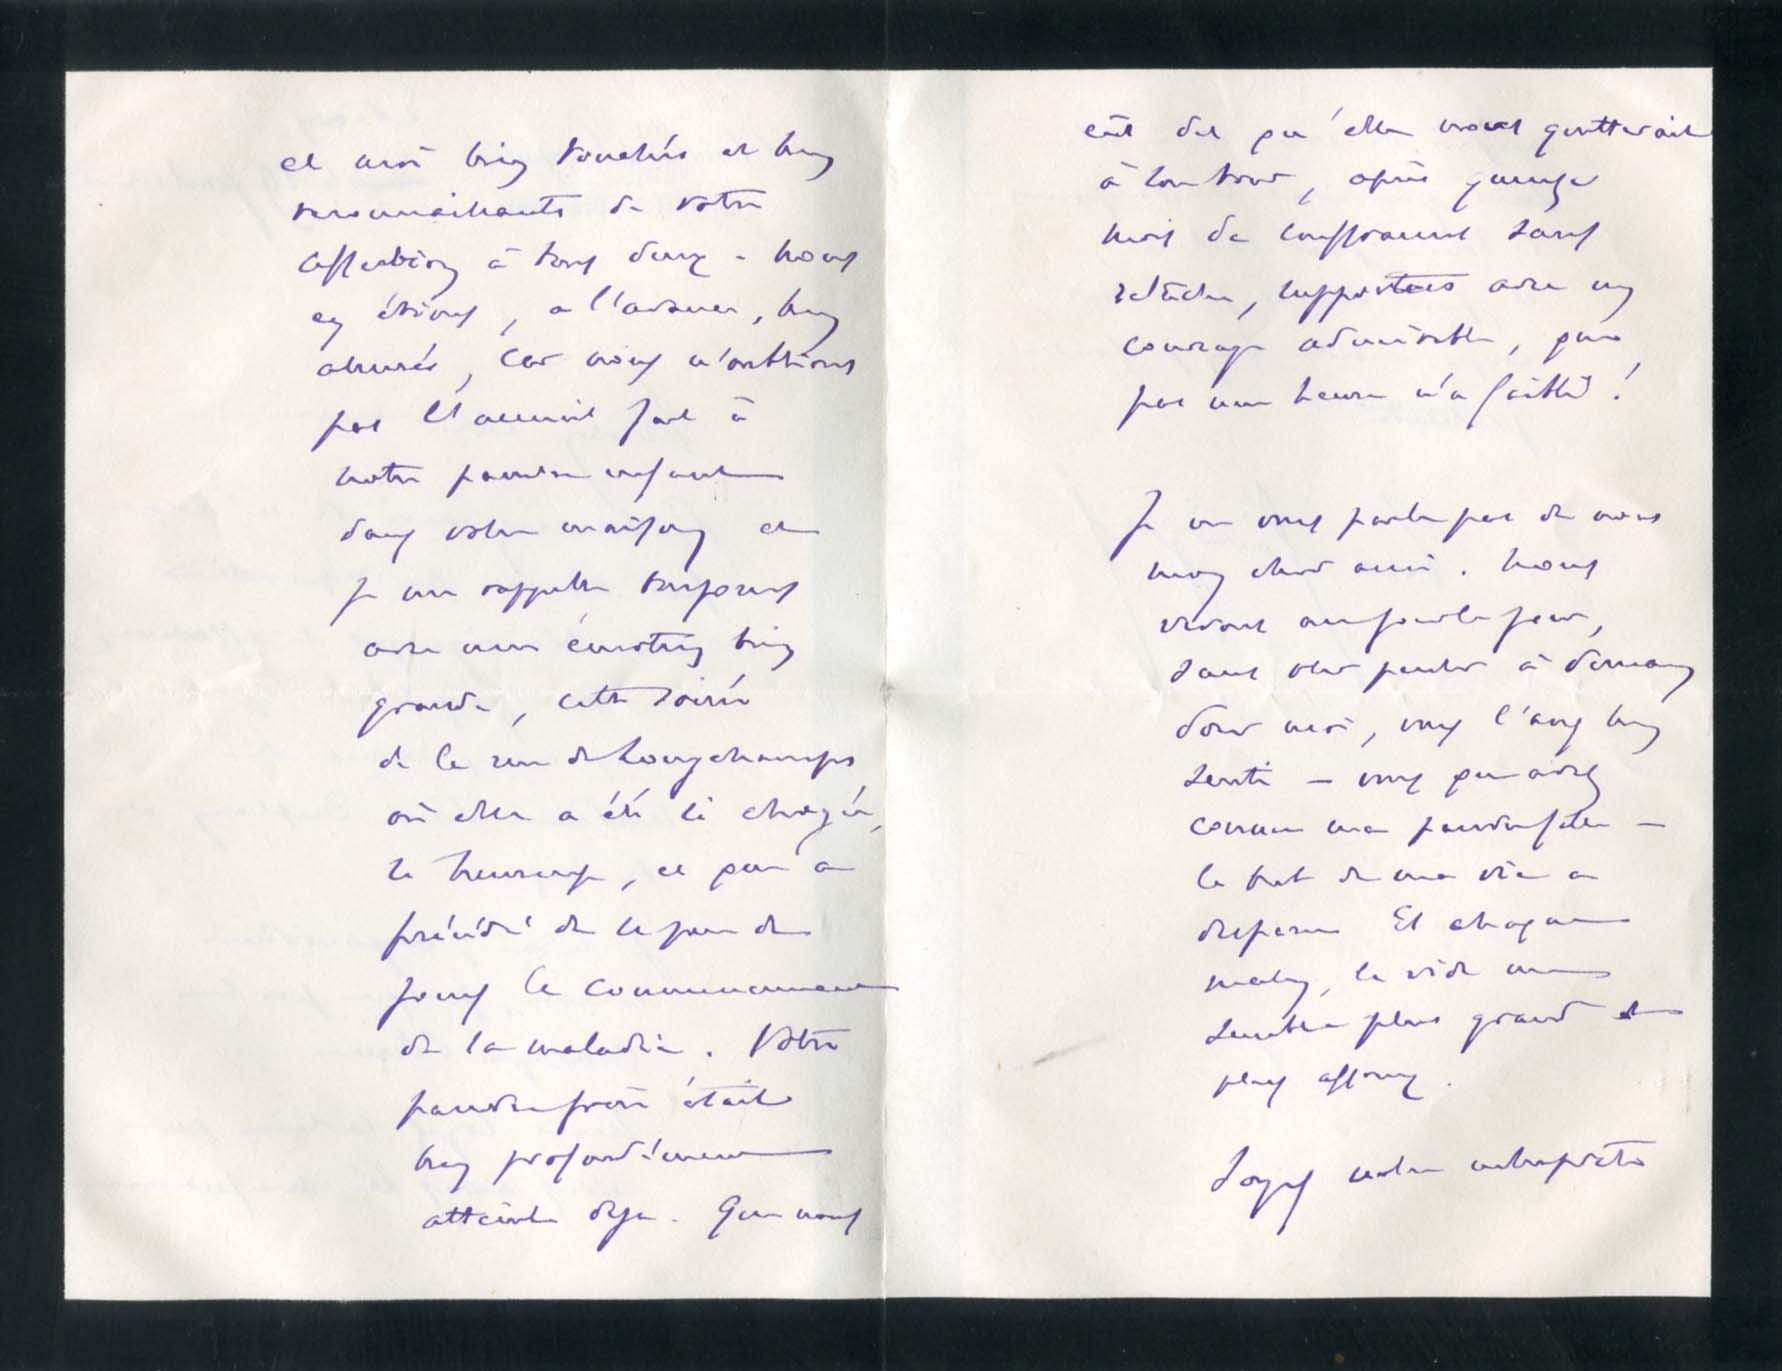 et moi bien touchés et bien
reconnaissants de votre
affection à tous deux - nous
en étions, à l'avance, bien
assurés, car nous n'oublions
pas l'accueil fait à
notre pauvre enfant
dans votre maison et
je me rappelle toujours
avec une émotion bien
grande, cette soirée
de la rue de Longchamps
où elle a été si choyée,
si heureuse, et qui a
précédé de si peu de
jours le commencement
de la maladie. Votre
pauvre frère était
bien profondément
atteint déjà. Qui nous
eût dit qu'elle nous quitterait
à son tour, après quinze
mois de souffrances sans
relâche, supportées avec un
courage admirable, qui
pas une heure n'a faibli !
Je ne vous parle pas de nous
mon cher ami. Nous
vivons au jour le jour,
sans oser penser à demain
Pour moi, vous l'avez bien
senti - vous qui avez
connu ma pauvre fille -
le but de ma vie a
disparu Et chaque
matin, le vide me
semble plus grand et
plus affreux.
Soyez notre interprète